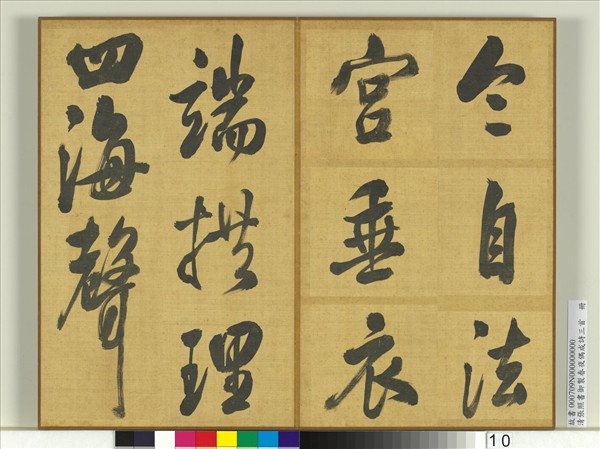 令自法
宮垂衣
端拱理
四海聲
故書000709N000000000
清張照書御製春夜偶成詩三首 冊
10